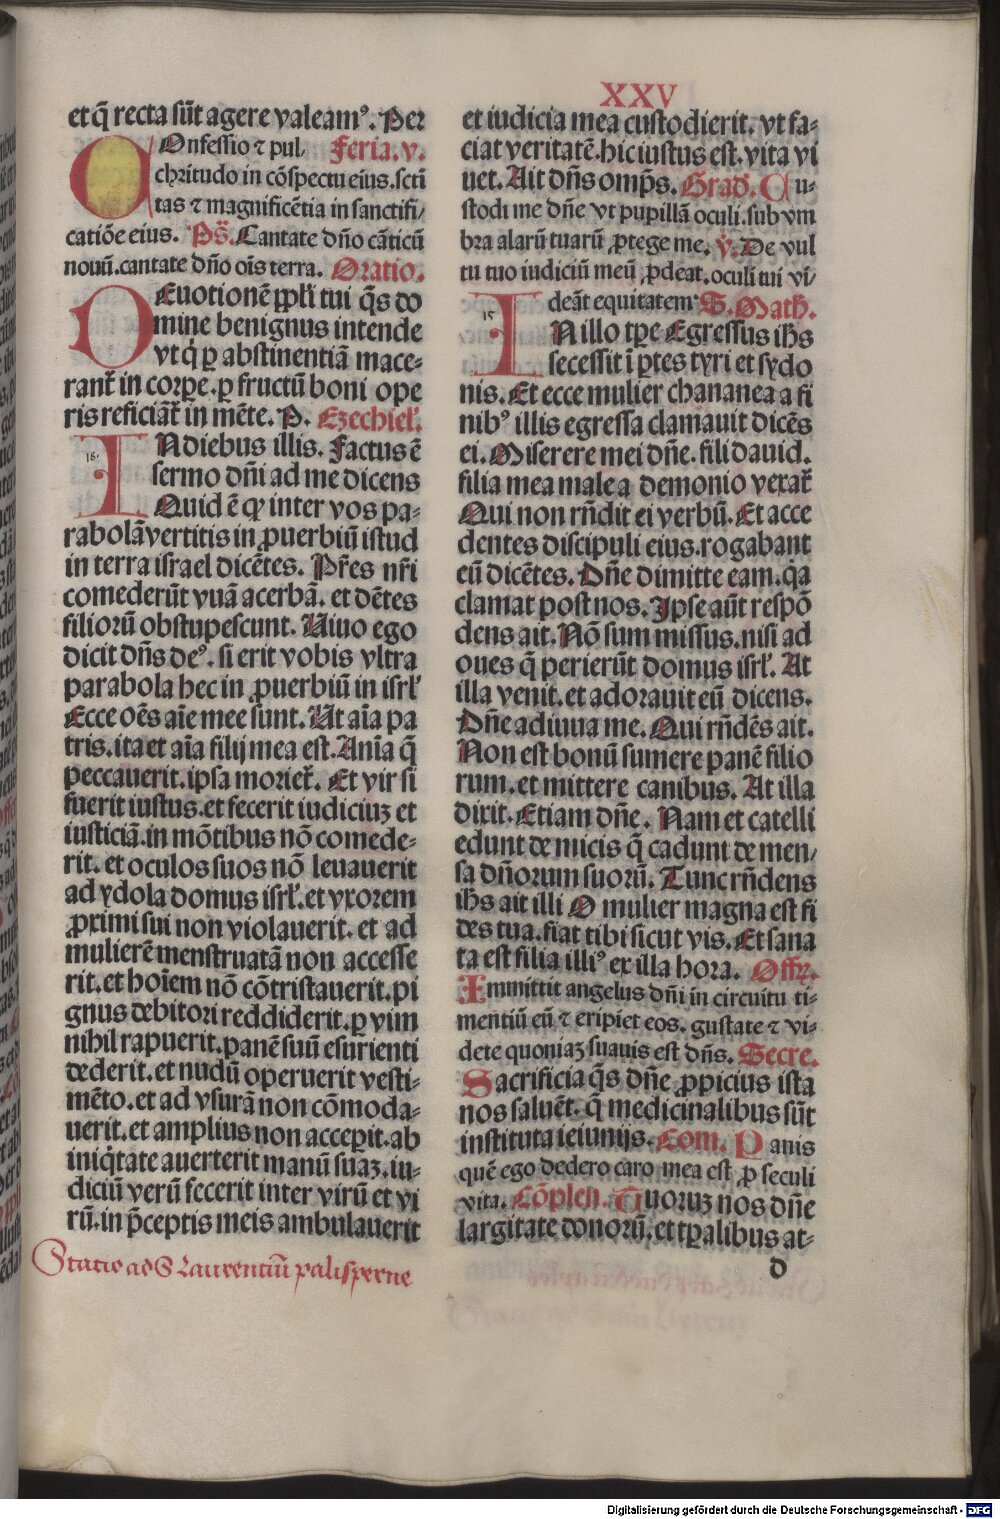 XXV
et q̄ recta sūt agere valeamꝰ. Per
COnfessio ⁊ pul⸗ Feria. v.
chritudo in cōspectu eius. scti
tas ⁊ magnificētia in sanctifi⸗
catiōe eius. Ps̄. Cantate dn̄o cāticū
nouū. cantate dn̄o oīs terra. Oratio.
DEuotionē ppl̄i tui q̄s do
mine benignus intende
vt q̇ ꝑ abstinentiā mace⸗
rant᷑ in corpe. ꝑ fructū boni ope
ris reficiāt᷑ in mēte. P. Ezechiel᷑.
18.
INdiebus illis. Factus ē
sermo dn̄i ad me dicens
Quid ē qꝫ inter vos pa⸗
rabolā vertitis in ꝓuerbiū istud
in terra israel dicētes. Pr̄es nr̄i
comederūt vuā acerbā. et dētes
filiorū obstupescunt. Uiuo ego
dicit dn̄s deꝰ. si erit vobis vltra
parabola hec in ꝓuerbiū in isrl᷑
Ecce oēs aīe mee sunt. Ut aīa pa
tris. ita et aīa filij mea est. Aīma q̄
peccauerit. ipsa moriet᷑. Et vir si
fuerit iustus. et fecerit iudiciuꝫ et
iusticiā. in mōtibus nō comede⸗
rit. et oculos suos nō leuauerit
ad ydola domus isrl᷑. et vxorem
ꝓximi sui non violauerit. et ad
mulierē menstruatā non accesse
rit. et hoīem nō cōtristauerit. pi
gnus debitori reddiderit. ꝑ vim
nihil rapuerit. panē suū esurienti
dederit. et nudū operuerit vesti⸗
mēto. et ad vsurā non cōmoda⸗
uerit. et amplius non acceperit. ab
iniq̇tate auerterit manū suaꝫ. iu⸗
diciū verū fecerit inter virū et vi
rū. in p̄ceptis meis ambulauerit
Statio ad S Laurentiū palisperne
et iudicia mea custodierit. vt fa⸗
ciat veritatē. hic iustus est. vita vi
uet. Ait dn̄s omp̄s. Grad᷑. Cu⸗
stodi me dn̄e vt pupillā oculi. sub vm
bra alarū tuarū ꝓtege me. v̄. De vul
tu tuo iudiciū meū ꝓdeat. oculi tui vi⸗
deāt equitatem S. Math.
15
IN illo tꝑe Egressus ihs
secessit ī ꝑtes tyri et sydo
nis. Et ecce mulier chananea a fi
nibꝰ illis egressa clamauit dicēs
ei. Miserere mei dn̄e. fili dauid.
filia mea male a demonio vexat᷑
Qui non rn̄dit ei verbū. Et acce
dentes discipuli eius. rogabant
eū dicētes. Dn̄e dimitte eam. q̇a
clamat post nos. Ipse aūt respō
dens ait. Nō sum missus. nisi ad
oues q̄ perierūt domus isrl᷑. At
illa venit. et adorauit eū dicens.
Dn̄e adiuua me. Qui rn̄dēs ait.
Non est bonū sumere panē filio
rum. et mittere canibus. At illa
dixit. Etiam dn̄e. Nam et catelli
edunt de micis q̄ cadunt de men⸗
sa dn̄orum suorū. Tunc rn̄dens
ihs ait illi O mulier magna est fi
des tua. fiat tibi sicut vis. Et sana
ta est filia illiꝰ ex illa hora. Offr̄.
Immittit angelus dn̄i in circuitu ti⸗
mentiū eū ⁊ eripiet eos. gustate ⁊ vi⸗
dete quoniaꝫ suauis est dn̄s. Secre.
Sacrificia q̄s dn̄e ꝓpicius ista
nos saluēt. q̄ medicinalibus sūt
instituta ieiunijs. Com. Panis
quē ego dedero caro mea est ꝓ seculi
vita. Cōplen. Quoruꝫ nos dn̄e
largitate donorū. et tꝑalibus at⸗
d
Digitalisierung gefördert durch die Deutsche Forschungsgemeinschaft - DFG